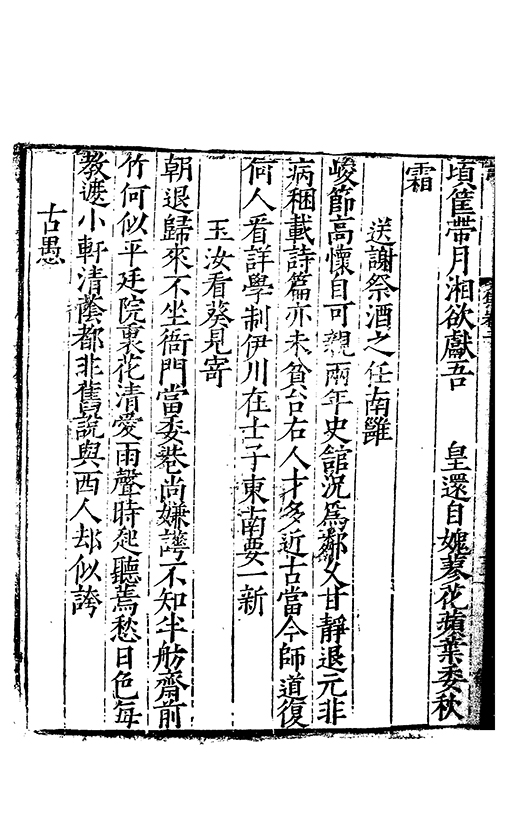 頃筐帶月湘欲獻吾　皇還自媿蓼花蘋葉委秋
霜
送謝祭酒之任南雝
峻節高懷自可親兩年史館況爲鄰久甘靜退元非
病稇載詩篇亦未貧台右人才多近古當今師道復
何人看詳學制伊川在士子東南要一新
玉汝看葵見寄
朝退歸來不坐衙門當委巷尚嫌譁不知半舫齋前
竹何似平廷院裏花清愛雨聲時起聽蔫愁日色每
教遮小軒清蔭都非舊說與西人却似誇
古愚